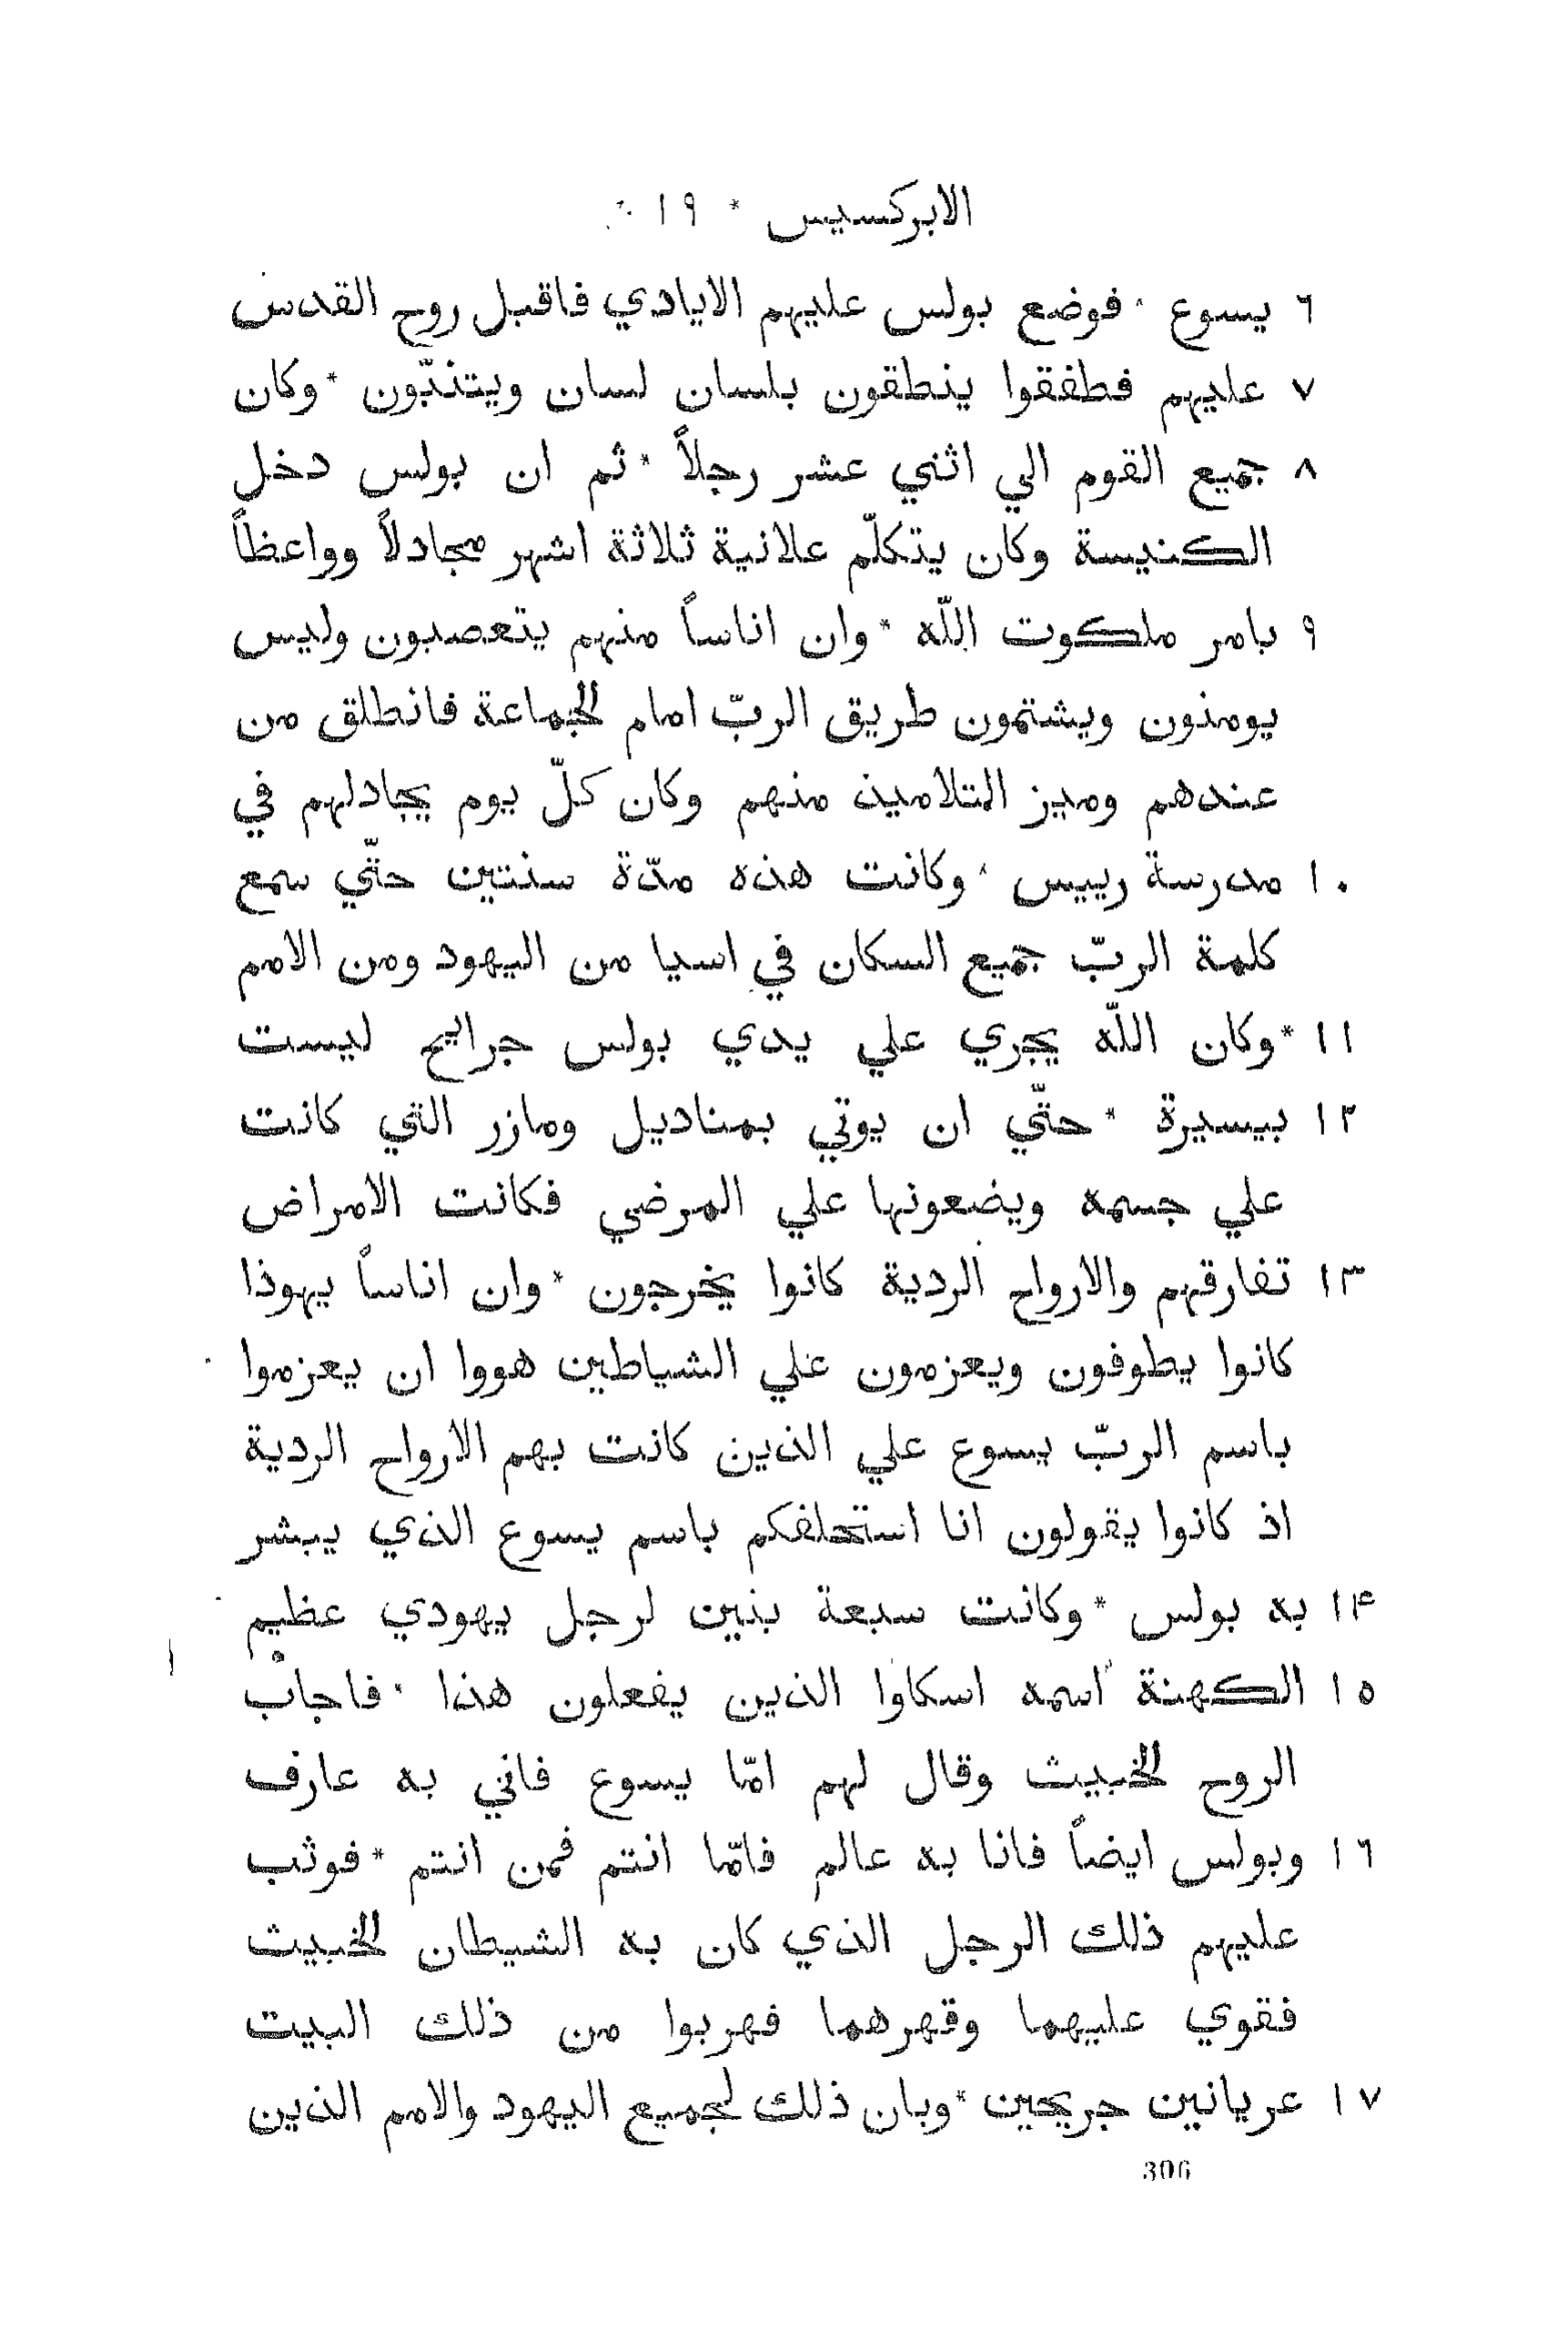 الابركسيس * ١٩ ∴
٦ يسوع * فوضع بولس عليهم الايادي فاقبل روح القدس
٧ عليهم فطفقوا ينطقون بلسان لسان ويتنبّون * وكان
٨ جميع القوم الي اثني عشر رجلاً * ثم ان بولس دخل
الكنيسة وكان يتكلّم علانية ثلاثة اشهر مجادلاً وواعظاً
٩ بامر ملكوت اللّه * وان اناساً منهم يتعصبون وليس
يومنون ويشتمون طريق الربّ امام الجماعة فانطلق من
عندهم وميز التلاميذ منهم وكان كلّ يوم يجادلهم في
١٠ مدرسة رييس * وكانت هذه مدّة سنتين حتّي سمع
كلمة الربّ جميع السكان في اسيا من اليهود ومن الامم
١١ * وكان اللّه يجري علي يدي بولس جرايح ليست
١٢ بيسيرة * حتّي ان يوتي بمناديل ومازر التي كانت
علي جسمه ويضعونها علي المرضي فكانت الامراض
١٣ تفارقهم والارواح الردية كانوا يخرجون * وان اناساً يهوذا
كانوا يطوفون ويعزمون علي الشياطين هووا ان يعزموا
باسم الربّ يسوع علي الذين كانت بهم الارواح الردية
اذ كانوا يقولون انا استحلفكم باسم يسوع الذي يبشر
١۴ به بولس * وكانت سبعة بنين لرجل يهودي عظيم
١٥ الكهنة اسمه اسكاوا الذين يفعلون هذا * فاجاب
الروح الخبيث وقال لهم امّا يسوع فاني به عارف
١٦ وبولس ايضاً فانا به عالم فامّا انتم فمن انتم * فوثب
عليهم ذلك الرجل الذي كان به الشيطان الخبيث
فقوي عليهما وقهرهما فهربوا من ذلك البيت
١٧ عريانين جريحين * وبان ذلك لجميع اليهود والامم الذين
306